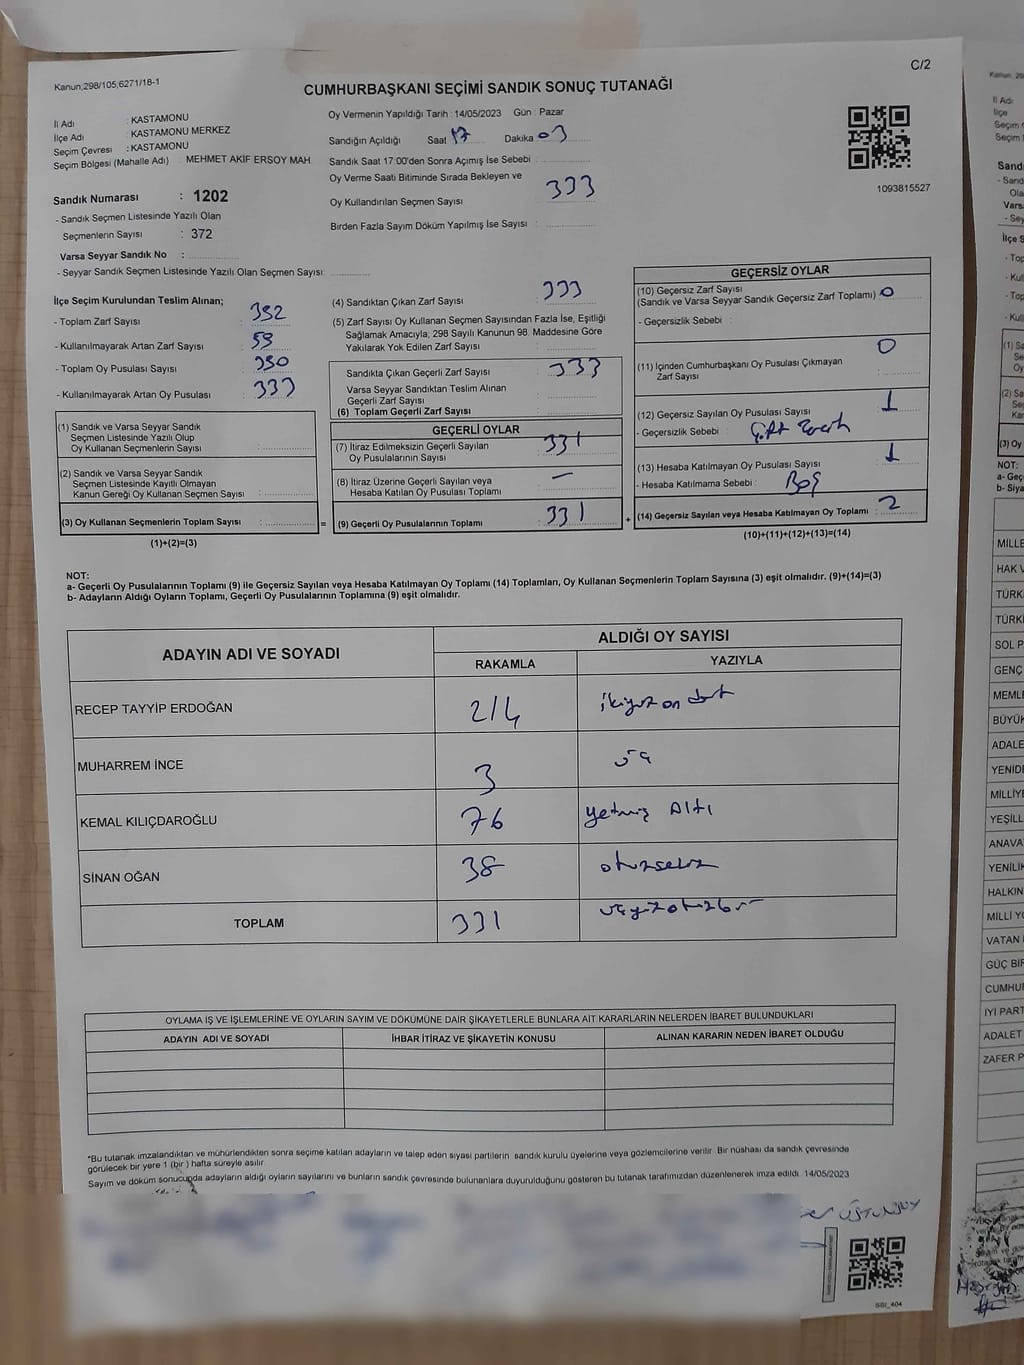 C/2
Kanun,298/105,6271/18-1
CUMHURBAŞKANI SEÇİMİ SANDIK SONUÇ TUTANAĞI
İl Adı : KASTAMONU
İlçe Adı : KASTAMONU MERKEZ
Seçim Çevresi : KASTAMONU
Seçim Bölgesi (Mahalle Adı) : MEHMET AKİF ERSOY MAH.
Sandık Numarası : 1202
- Sandık Seçmen Listesinde Yazılı Olan
Seçmenlerin Sayısı : 372
Varsa Seyyar Sandık No :
- Seyyar Sandık Seçmen Listesinde Yazılı Olan Seçmen Sayısı:
Oy Vermenin Yapıldığı Tarih : 14/05/2023 Gün : Pazar
Sandığın Açıldığı Saat 17 Dakika 03
Sandık Saat 17:00'den Sonra Açımış İse Sebebi :
Oy Verme Saati Bitiminde Sırada Bekleyen ve
Oy Kullandırılan Seçmen Sayısı 333
Birden Fazla Sayım Döküm Yapılmış İse Sayısı :
1093815527
İlçe Seçim Kurulundan Teslim Alınan;
- Toplam Zarf Sayısı 392
- Kullanılmayarak Artan Zarf Sayısı 59
- Toplam Oy Pusulası Sayısı
- Kullanılmayarak Artan Oy Pusulası
(1) Sandık ve Varsa Seyyar Sandık
Seçmen Listesinde Yazılı Olup
Oy Kullanan Seçmenlerin Sayısı :
(2) Sandık ve Varsa Seyyar Sandık
Seçmen Listesinde Kayıtlı Olmayan
Kanun Gereği Oy Kullanan Seçmen Sayısı :
(3) Oy Kullanan Seçmenlerin Toplam Sayısı : =
(1)+(2)=(3)
(4) Sandıktan Çıkan Zarf Sayısı 333
(5) Zarf Sayısı Oy Kullanan Seçmen Sayısından Fazla İse, Eşitliği
Sağlamak Amacıyla; 298 Sayılı Kanunun 98. Maddesine Göre
Yakılarak Yok Edilen Zarf Sayısı :
Sandıkta Çıkan Geçerli Zarf Sayısı 333
Varsa Seyyar Sandıktan Teslim Alınan
Geçerli Zarf Sayısı
(6) Toplam Geçerli Zarf Sayısı
GEÇERLİ OYLAR
(7) İtiraz Edilmeksizin Geçerli Sayılan
Oy Pusulalarının Sayısı 331
(8) İtiraz Üzerine Geçerli Sayılan veya
Hesaba Katılan Oy Pusulası Toplamı : —
(9) Geçerli Oy Pusulalarının Toplamı : 331 +
GEÇERSİZ OYLAR
(10) Geçersiz Zarf Sayısı
(Sandık ve Varsa Seyyar Sandık Geçersiz Zarf Toplamı) 0
- Geçersizlik Sebebi :
(11) İçinden Cumhurbaşkanı Oy Pusulası Çıkmayan
Zarf Sayısı : 0
(12) Geçersiz Sayılan Oy Pusulası Sayısı 1
- Geçersizlik Sebebi :
(13) Hesaba Katılmayan Oy Pusulası Sayısı 1
- Hesaba Katılmama Sebebi : Boş
(14) Geçersiz Sayılan veya Hesaba Katılmayan Oy Toplamı : 2
(10)+(11)+(12)+(13)=(14)
NOT:
a- Geçerli Oy Pusulalarının Toplamı (9) ile Geçersiz Sayılan veya Hesaba Katılmayan Oy Toplamı (14) Toplamları, Oy Kullanan Seçmenlerin Toplam Sayısına (3) eşit olmalıdır. (9)+(14)=(3)
b- Adayların Aldığı Oyların Toplamı, Geçerli Oy Pusulalarının Toplamına (9) eşit olmalıdır.
ADAYIN ADI VE SOYADI
ALDIĞI OY SAYISI
RAKAMLA YAZIYLA
RECEP TAYYİP ERDOĞAN 214 ikiyüz on dört
MUHARREM İNCE 3 üç
KEMAL KILIÇDAROĞLU 76 yetmiş Altı
SİNAN OĞAN 38 otuzsekiz
TOPLAM 331 üçyüzotuzbir
OYLAMA İŞ VE İŞLEMLERİNE VE OYLARIN SAYIM VE DÖKÜMÜNE DAİR ŞİKAYETLERLE BUNLARA AİT KARARLARIN NELERDEN İBARET BULUNDUKLARI
ADAYIN ADI VE SOYADI İHBAR İTİRAZ VE ŞİKAYETİN KONUSU ALINAN KARARIN NEDEN İBARET OLDUĞU
*Bu tutanak imzalandıktan ve mühürlendikten sonra seçime katılan adayların ve talep eden siyasi partilerin sandık kurulu üyelerine veya gözlemcilerine verilir. Bir nüshası da sandık çevresinde
görülecek bir yere 1 (bir) hafta süreyle asılır.
Sayım ve döküm sonucunda adayların aldığı oyların sayılarını ve bunların sandık çevresinde bulunanlara duyurulduğunu gösteren bu tutanak tarafımızdan düzenlenerek imza edildi. 14/05/2023
SBI_404
Kanun, 29
İl Adı
İlçe
Seçim
Sand
- Sand
Ola
Varsa
- Sey
İlçe S
- Top
- Kul
- Top
- Kul
(3) Oy
NOT:
a- Geç
b- Siya
MİLLE
HAK V
TÜRK
TÜRKİ
SOL P
GENÇ
MEML
BÜYÜK
ADALE
YENİD
MİLLİY
YEŞİLL
ANAVA
YENİLİK
HALKIN
MİLLİ YO
VATAN
GÜÇ BİR
CUMHUR
İYİ PART
ADALET
ZAFER P